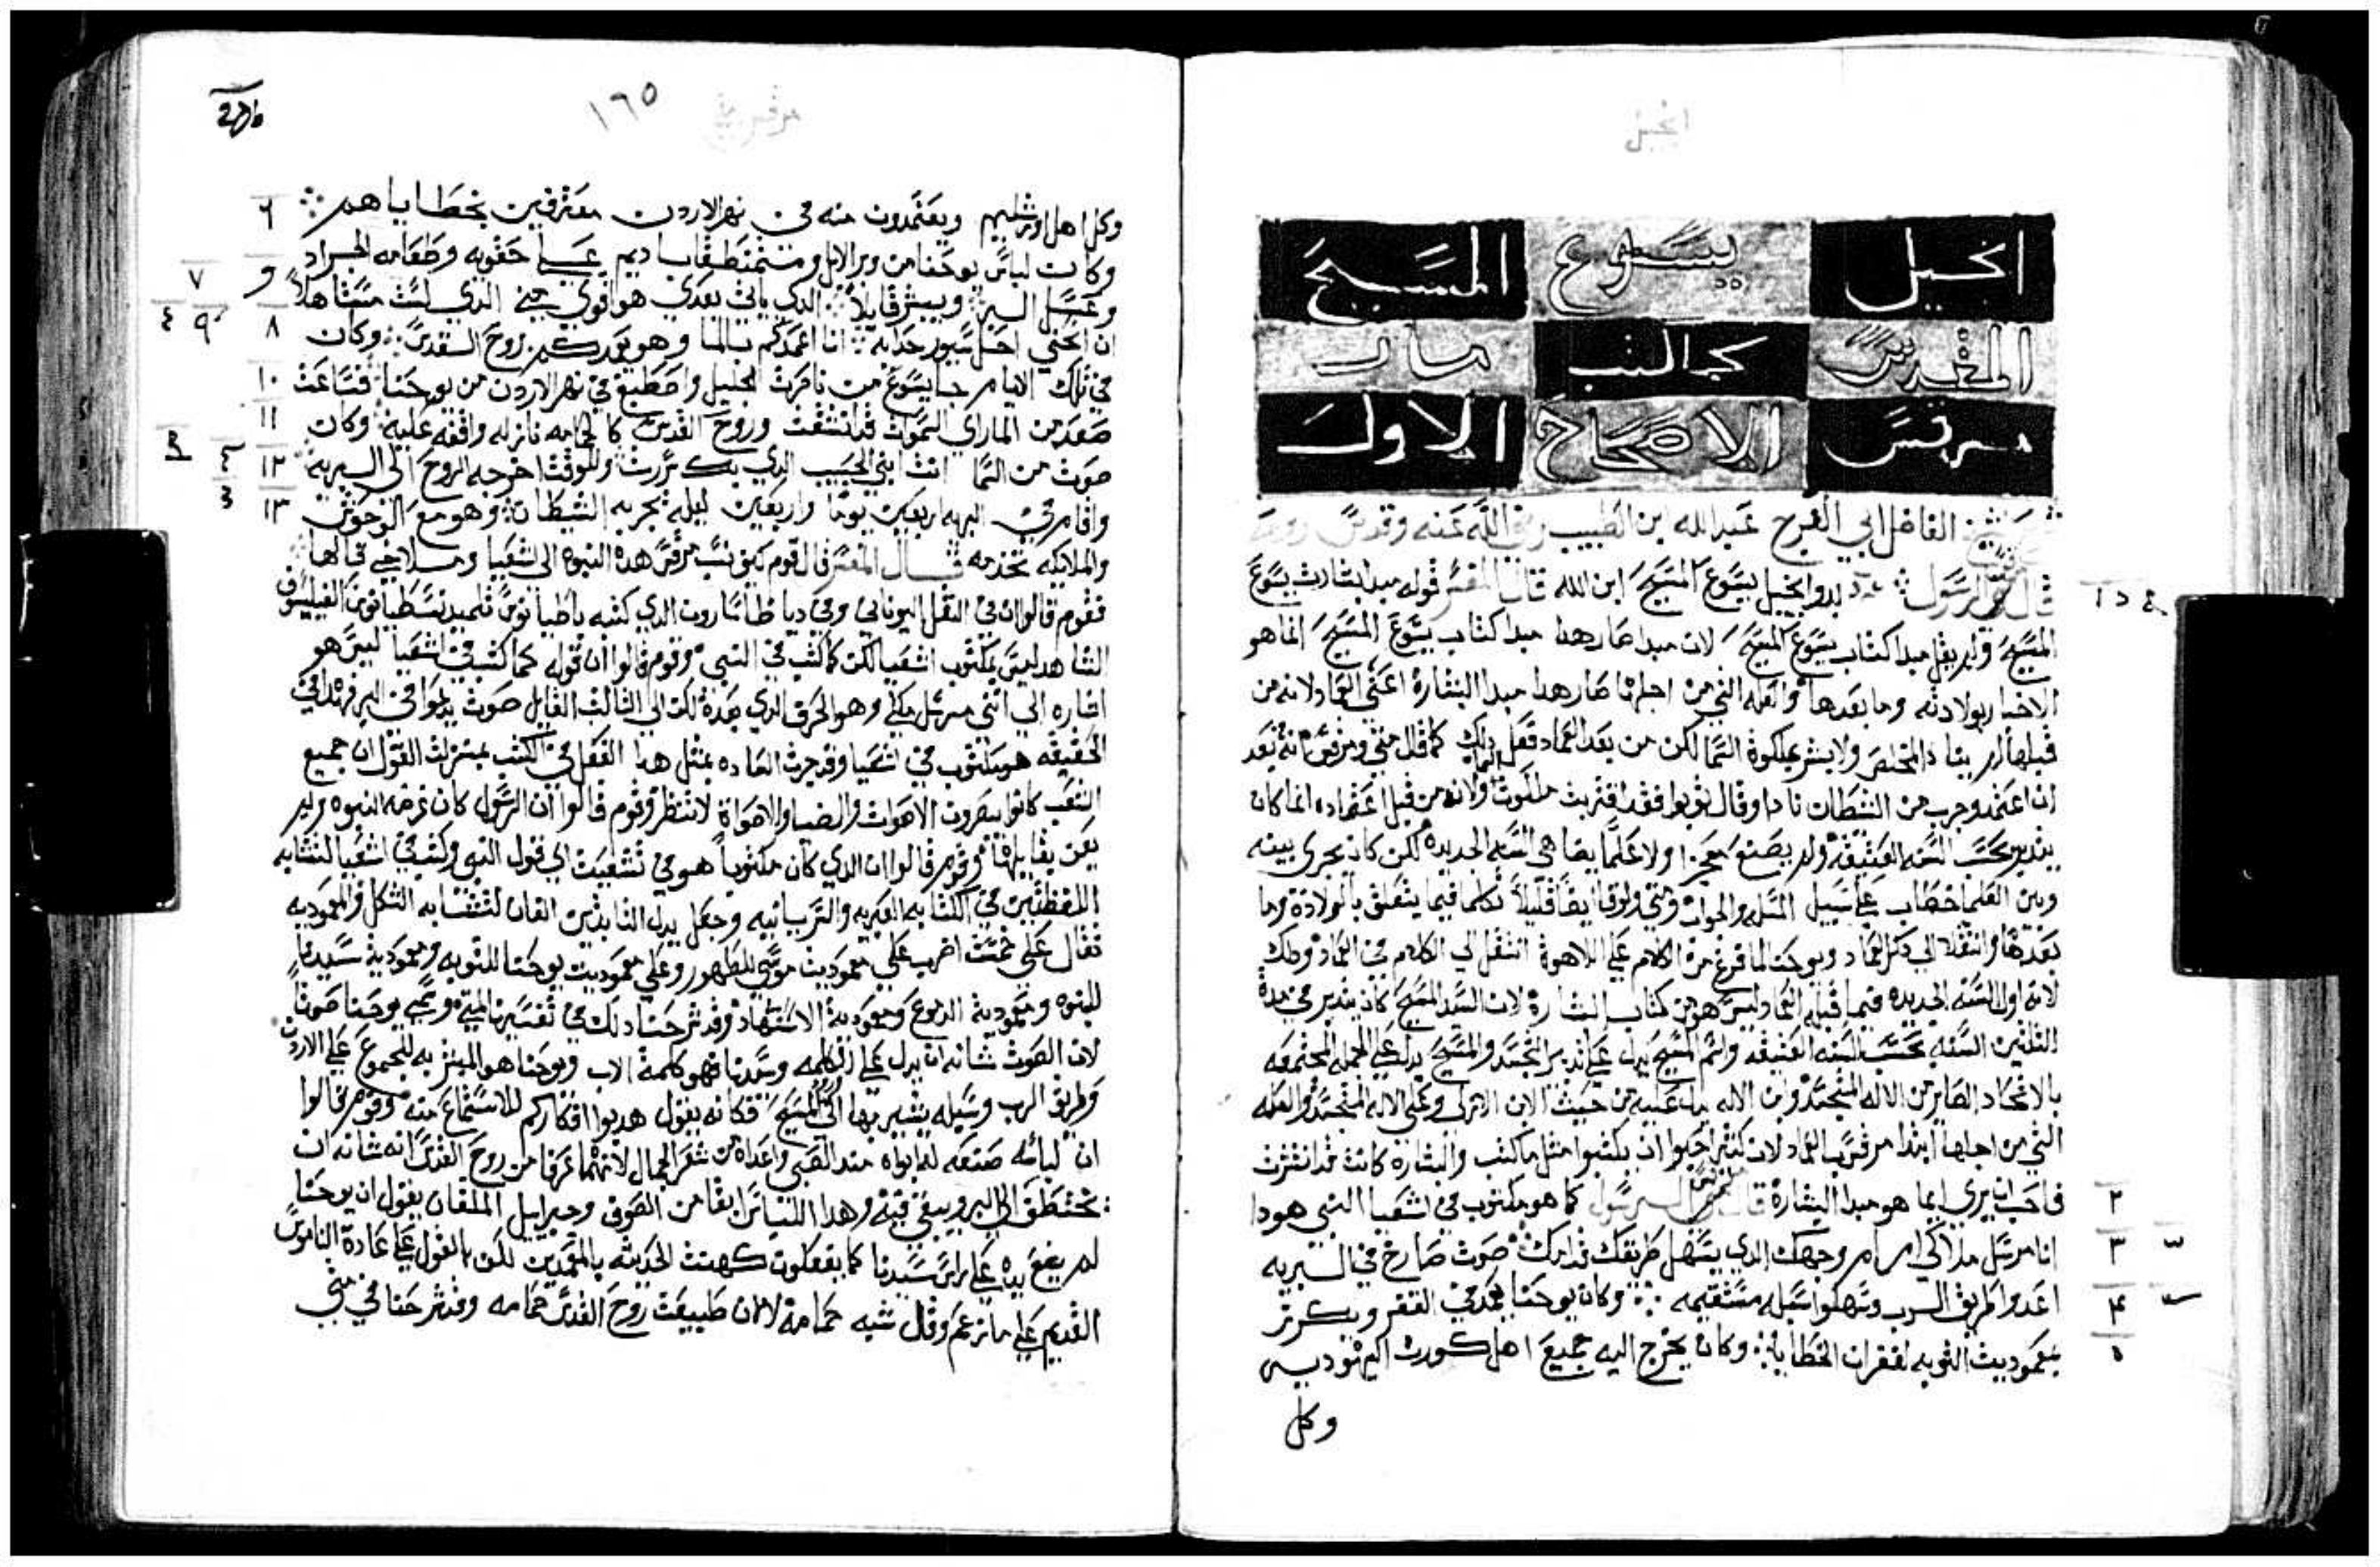 انجيل
انجيل يسوع المسيح
المقدس كما كتب مار
مرقس الاصحاح الاول
الفاضل ابي الفرج عبدالله ابن الطيب رضي الله عنه وقدس روحه
قال الرسول بدو انجيل يسوع المسيح ابن الله قال المفسر قوله مبدا بشارت يسوع
المسيح ولم يقل مبدا كتاب يسوع المسيح لان مبدا صار هذا مبدا كتاب يسوع المسيح انما هو
الاخبار بولادته وما بعدها والعله التي من اجلها صار هذا مبدا البشارة اعني العماد لانه من
قبلها لم ينادا المخلص ولا بشر بملكوة السما لكن من بعد العماد فعل ذلك كما قال متي ومرقس انه بعد
ان اعتمد وجرب من الشيطان نادا وقال توبوا فقد اقتربت ملكوت ولانه من قبل اعتماده انما كان
يتدبر بحسب السنه العتيقه ولم يصنع معجزا ولا علما يضاهي السنه الجديده لكن كان يجري بينه
وبين العلما خطاب علي سبيل المسله والجواب ومتي ولوقا ايضا قليلا تكلما فيما يتعلق بالولادة وما
بعدها وانتقلا الي ذكر العماد ويوحنا لما فرغ من الكلام علي اللاهوة انتقل الي الكلام في العماد وذلك
لانه اول السنه الجديده فيما قبل العماد ليس هو من كتاب البشارة لان السيد المسيح كان يتدبر في مدة
الثلثين السنه بحسب السنه العتيقه واسم المسيح يدل علي تدبير التجسد والمسيح يدل علي الجمله المجتمعه
بالاتحاد الصاير من الاله المتجسد وابن الاله يدل عليه من حيث الابن الازلي وعلي الاله المتجسد والعله
التي من اجلها ابتدا مرقس بالعماد لان كثير احبوا ان يكتبوا مثل ما كتب والبشارة كانت قد انتشرت
فاحب ان يري ايما هو مبدا البشارة قال الرسول كما هو مكتوب في اشعيا النبي هودا ٢
انا مرسل ملاكي امام وجهك الدي يسهل طريقك قدامك صوت صارخ في البريه ٣
اعدوا طريق الرب وسهلوا سبله مستقيمه وكان يوحنا يعمد في القفر ويكرز ٤
بمعموديت التوبه لغفران الخطايا وكان يخرج اليه جميع اهل كورت اليهوديه ٥
وكل
١٦٥
وكل اهل اورشليم ويعتمدون منه في نهر الاردن معترفين بخطاياهم ٦
وكان لباس يوحنا من وبر الابل ومتمنطقا باديم علي حقويه وطعامه الجراد
وعسل البر ويبشر قايلا الدي ياتي بعدي هو اقوي مني الذي لست مستاهلا ٧
ان انحني احل سيور حدايه انا اعمدكم بالما وهو يعمدكم بروح القدس وكان ٨ ٩
في تلك الايام جا يسوع من ناصرت الجليل واصطبغ في نهر الاردن من يوحنا فساعت ١٠
صعد من الما راي السموات قد انشقت وروح القدس كالحمامه نازله واقفه عليه وكان ١١
صوت من السما انت ابني الحبيب الدي بك سررت وللوقت اخرجه الروح الي البريه ١٢
واقام في البريه اربعين يوما واربعين ليله يجربه الشيطان وهو مع الوحوش ١٣
والملايكه تخدمه قال المفسر قال قوم كيف نسب مرقس هده النبوه الي اشعيا وملاخي قالها
فقوم قالوا ان في النقل اليوناني وفي دياطاسارون الدي كتبه
الشاهد ليس بمكتوب اشعيا لكن كما كتب في النبي وقوم قالوا ان قوله كما كتب في اشعيا ليس هو
اشاره الي انني مرسل ملاكي وهو الحرف الدي بعده لكن الي الثالث القايل صوت يدعوا في البر فهذا في
الحقيقه هو مكتوب في اشعيا وقد جرت العاده بمثل هدا الفعل في الكتب بمنزلت القول ان جميع
الشعب كانوا يبصرون الاصوات والضيا والاصواة لا تنظر وقوم قالوا ان الرسول كان غرضه النبوه ولم
وقوم قالوا ان الدي كان مكتوبا هو في الي قول النبي وكتب في اشعيا لتشابه
اللفظتين في الكتابه العبريه والسريانيه وجعل بدل
تقال علي خمست اضرب علي معموديت موسي للطهور وعلي معموديت يوحنا للتوبه ومعمودية سيدنا
للبنوه ومعمودية الدموع ومعمودية الاستشهاد وقد شرحنا دلك في تفسيرنا لمتي وسمي يوحنا صوتا
لان الصوت شانه ان يدل علي الكلمه وسيدنا فهو كلمة الاب ويوحنا هو المبشر به للجموع علي الاردن
وطريق الرب وسبله يشير بها الي المسيح فكانه يقول هدبوا افكاركم للاستماع منه وقوم قالوا
ان لباسه صنعه له ابواه مند الصبي واعداه من شعر الجمال لانهما عرفا من روح القدس انه شانه ان
الي البر ويبقي فيه وهدا اللباس ابقا من الصوف وجبراييل الملفان يقول ان يوحنا
لم يضع يده علي راس سيدنا كما يفعلون كهنت الحديثه بالمعمدين لكن بالقول علي عادة الناموس
القديم علي ما زعم وقال شبه حمامة لا لان طبيعت روح القدس حمامه وقد شرحنا في متي